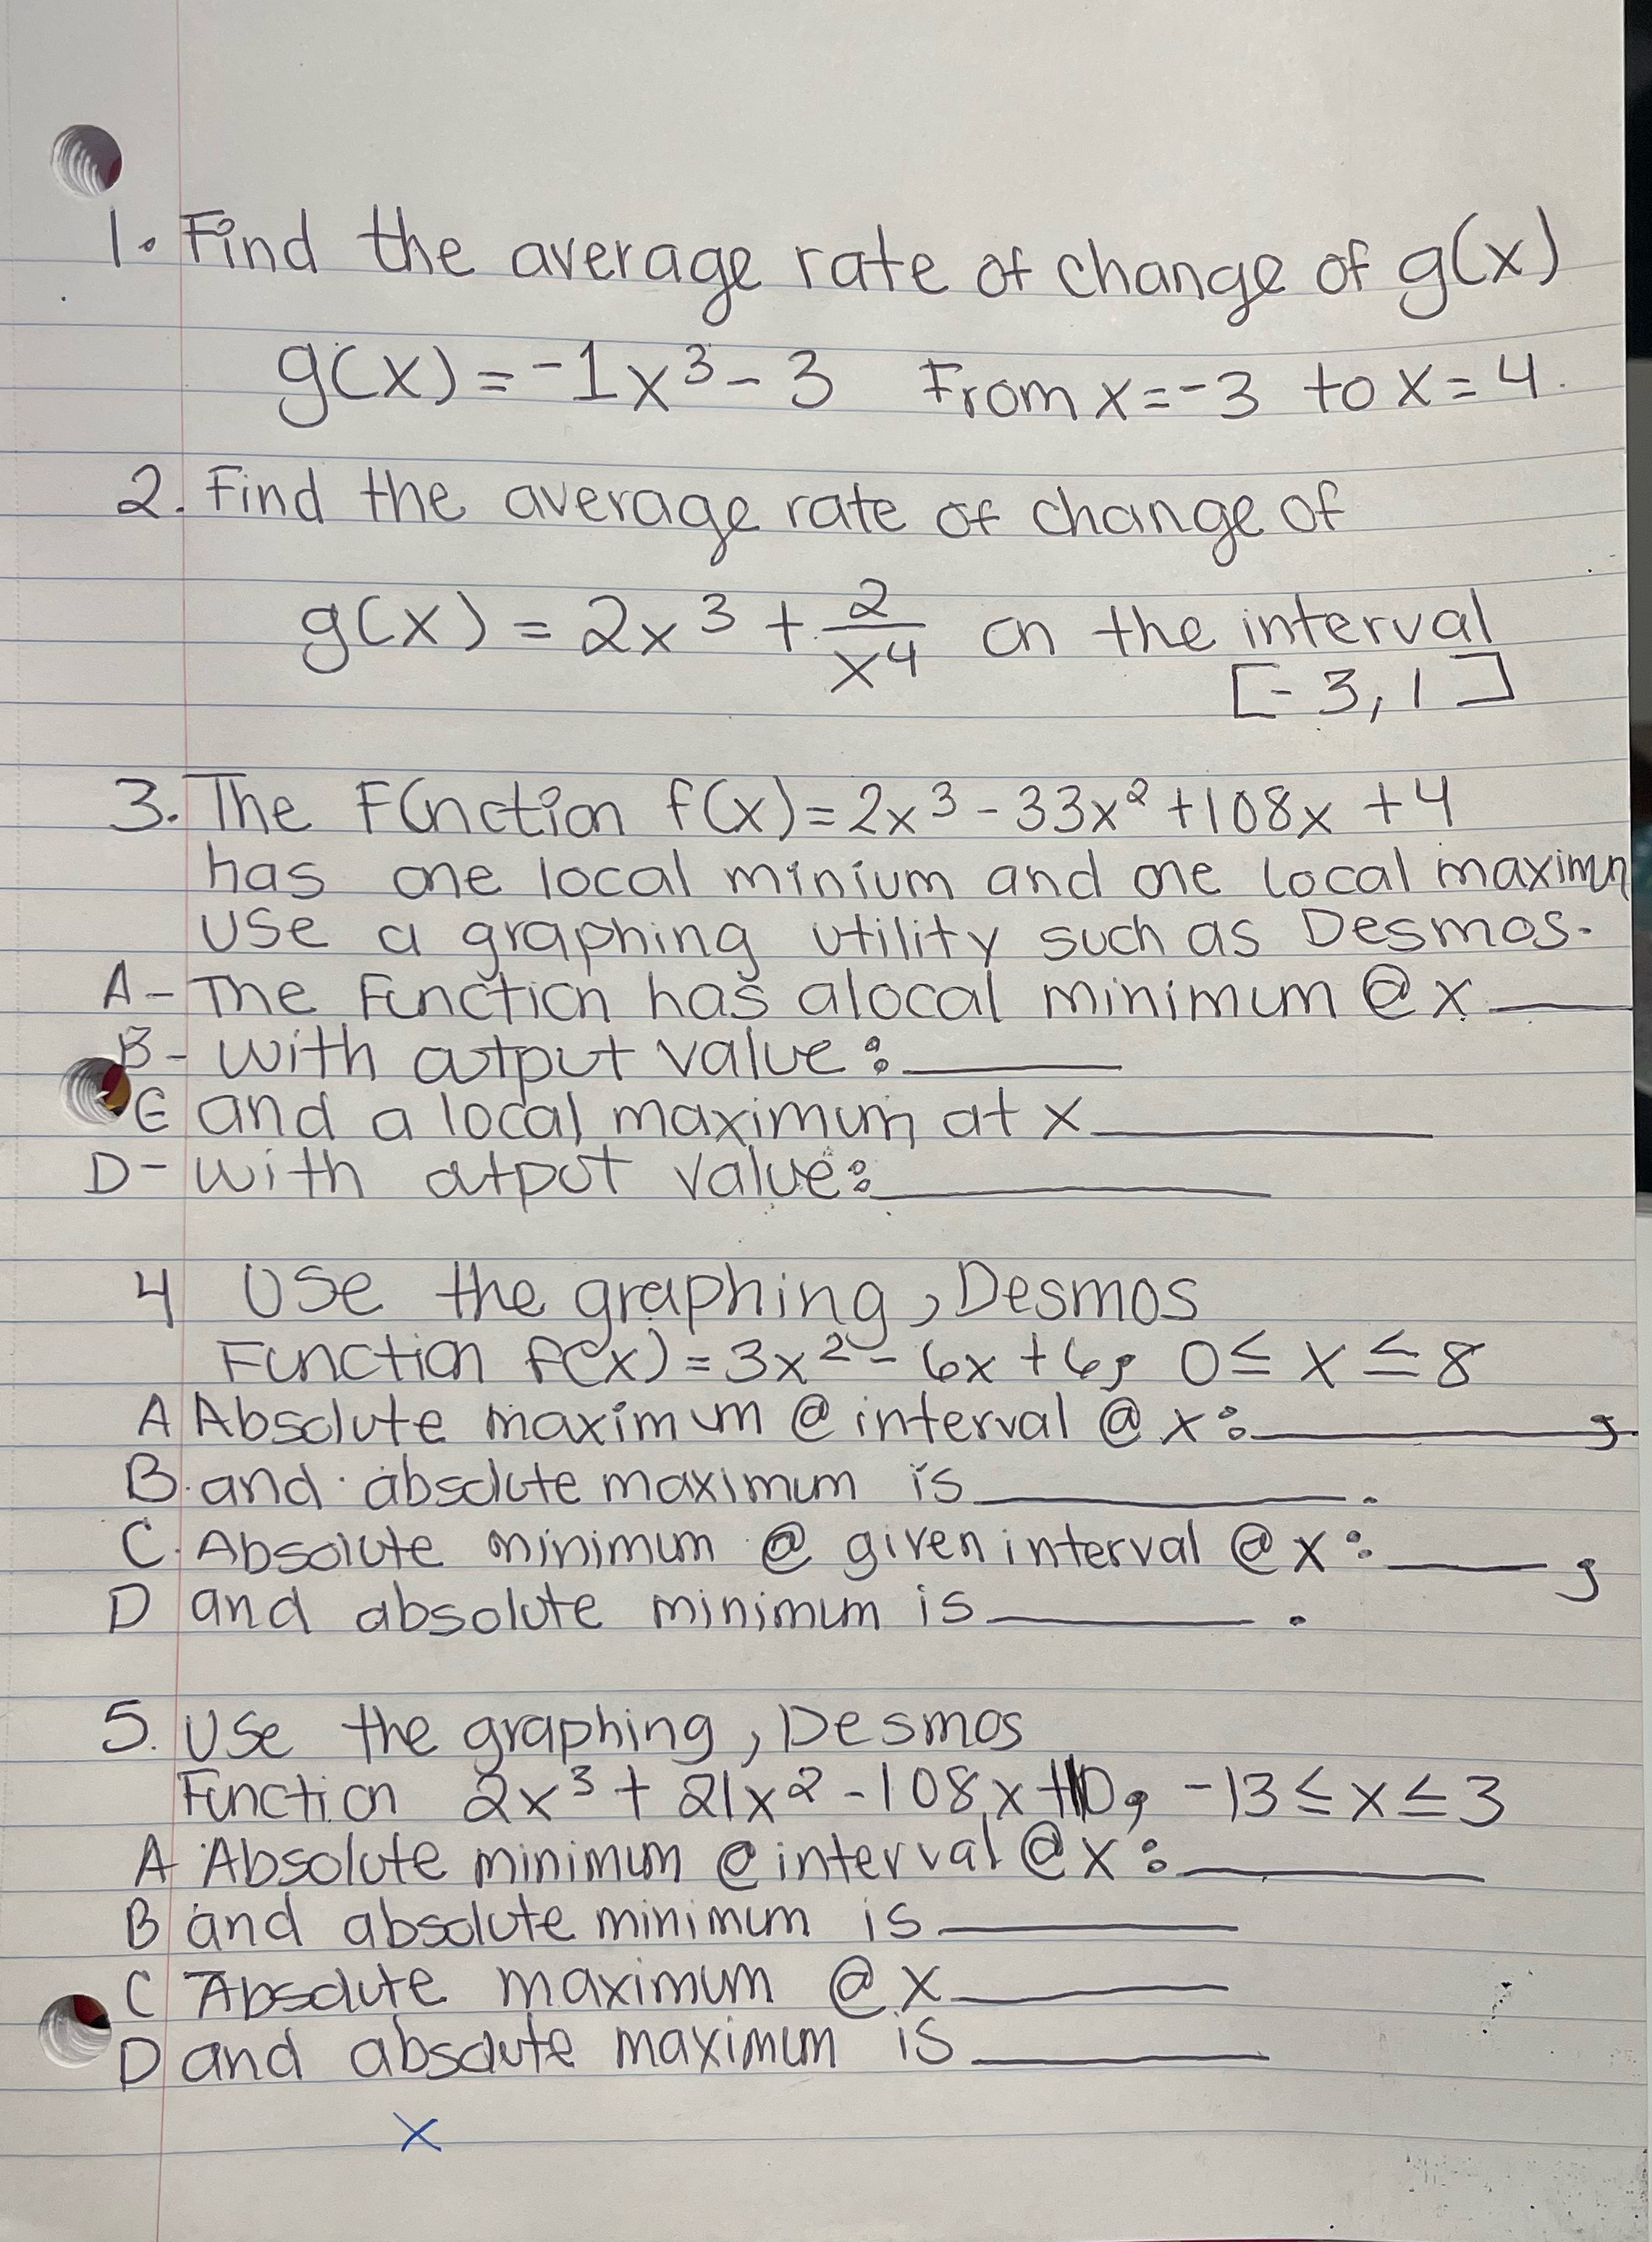 1. Find the average rate of change of g(x)
g(x) = -1x³ - 3 From x = -3 to x = 4.
2. Find the average rate of change of
g(x) = 2x³ + 2/x⁴ on the interval
[-3, 1]
3. The Function f(x) = 2x³ - 33x² + 108x + 4
has one local minium and one local maximun
Use a graphing utility such as Desmos.
A- The Function has a local minimum @ x ____
B- with output value: ____
C and a local maximum at x ____
D- with output value: ____
4 Use the graphing, Desmos
Function f(x) = 3x² - 6x + 6; 0 ≤ x ≤ 8
A Absolute maximum @ interval @ x: ____ ;
B. and absolute maximum is ____.
C. Absolute minimum @ given interval @ x: ____ ;
D and absolute minimum is ____.
5. Use the graphing, Desmos
Function 2x³ + 21x² - 108x + 10; -13 ≤ x ≤ 3
A Absolute minimum @ interval @ x: ____
B and absolute minimum is ____
C Absolute maximum @ x ____
D and absolute maximum is ____
x